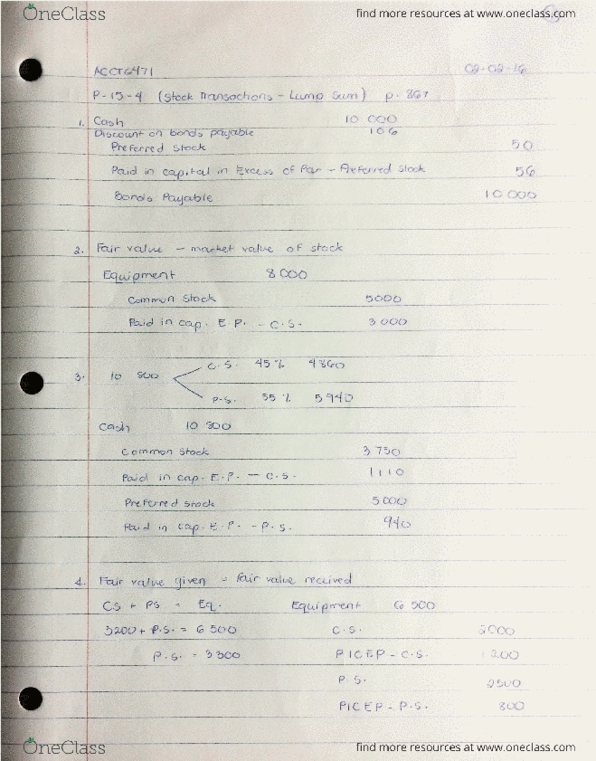 OneClass find more resources at www.oneclass.com
ACCT6471 02-02-16
P-15-4 (Stock Transactions - Lump Sum) p. 867
1. Cash 10 000
Discount on bonds payable 106
Preferred stock 50
Paid in capital in Excess of Par - Preferred stock 56
Bonds Payable 10 000
2. Fair value - market value of stock
Equipment 8 000
Common Stock 5000
Paid in cap. E.P. - C.S. 3 000
3. 10 800 C.S. 45% 4860
P.S. 55% 5 940
Cash 10 800
Common stock 3 750
Paid in cap. E.P. - C.S. 1110
Preferred stock 5000
Paid in cap. E.P. - P.S. 940
4. Fair value given = Fair value received
CS + PS = Eq. Equipment 6 500
3200 + P.S. = 6 500 C.S. 2000
P.S. = 3 300 PICEP - C.S. 1 200
P.S. 2500
PICEP - P.S. 800
OneClass find more resources at www.oneclass.com